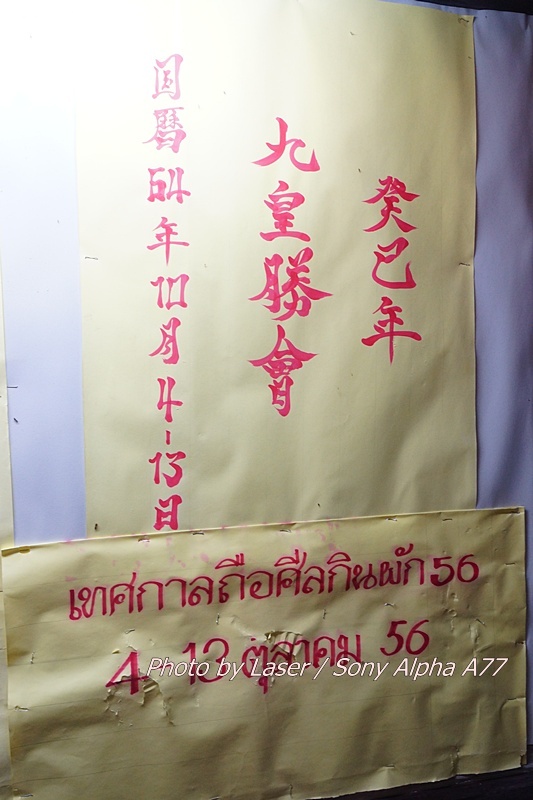 癸巳年
九皇勝會
曆54年10月4-13日
เทศกาลถือศีลกินผัก 56
4 13 ตุลาคม 56
Photo by Laser / Sony Alpha A77